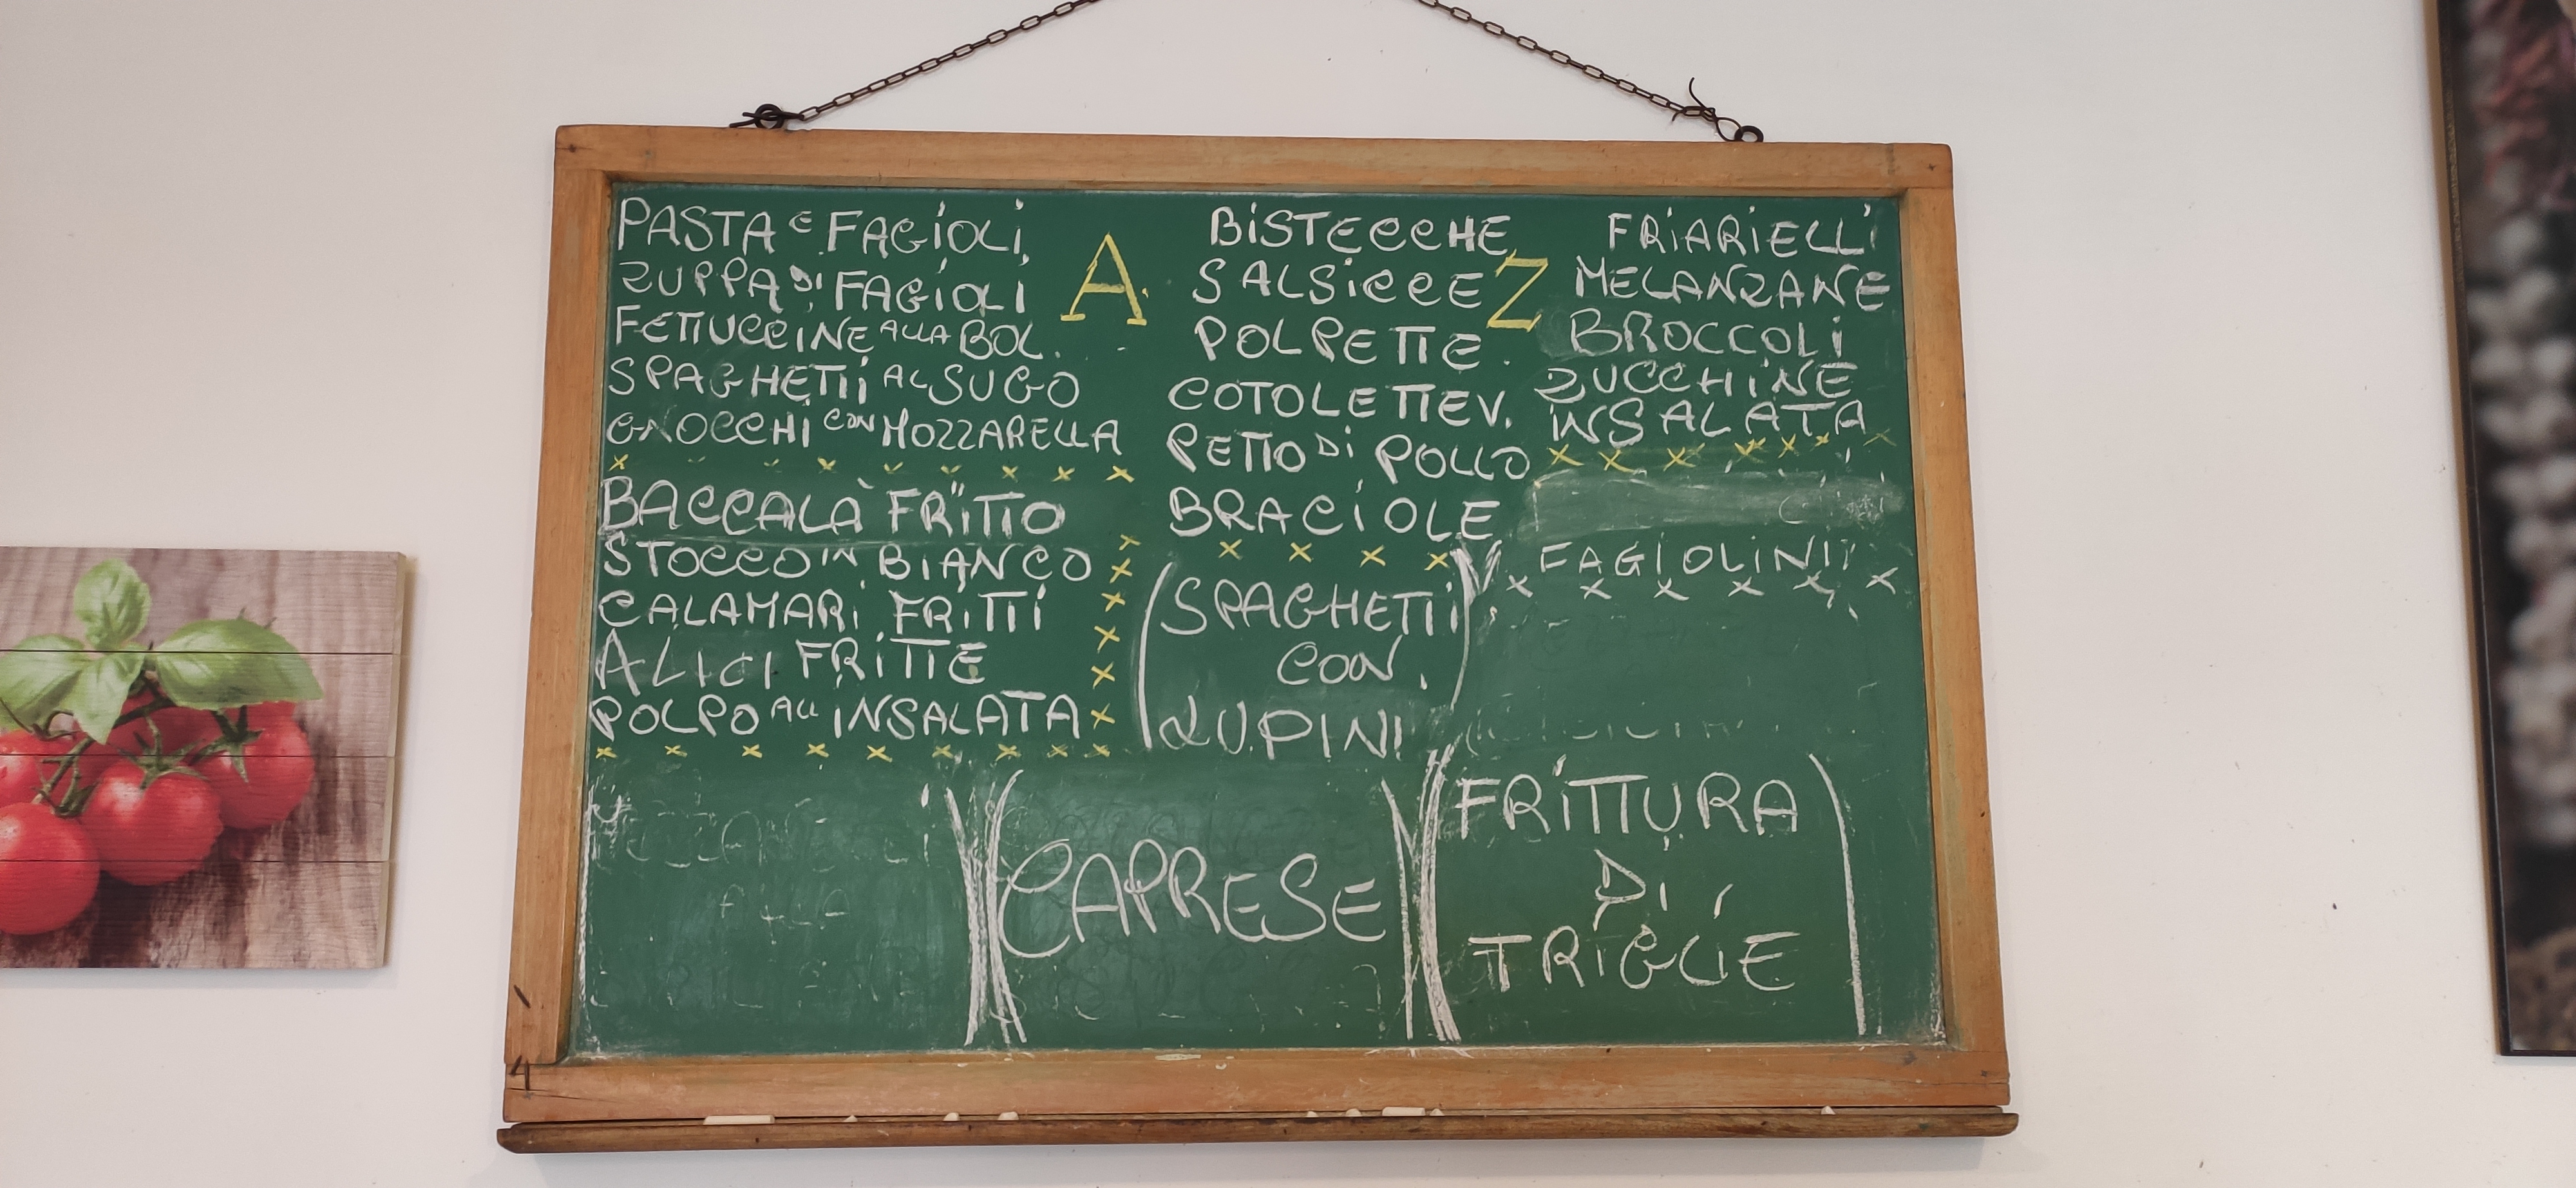 PASTA E FAGIOLI
ZUPPA DI FAGIOLI
FETTUCCINE ALLA BOL.
SPAGHETTI AL SUGO
GNOCCHI CON MOZZARELLA
BACCALÀ FRITTO
STOCCO IN BIANCO
CALAMARI FRITTI
ALICI FRITTE
POLPO ALL INSALATA
A
BISTECCHE
SALSICCE
POLPETTE
COTOLETTE V.
PETTO DI POLLO
BRACIOLE
Z
FRIARIELLI
MELANZANE
BROCCOLI
ZUCCHINE
INSALATA
FAGIOLINI
(SPAGHETTI)
CON
LUPINI
(CAPRESE)
(FRITTURA)
DI
TRIGLIE